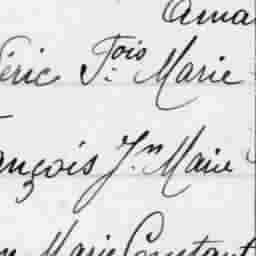 Ama
éric F.ois Marie
ançois J.n Marie
n Marie Constant